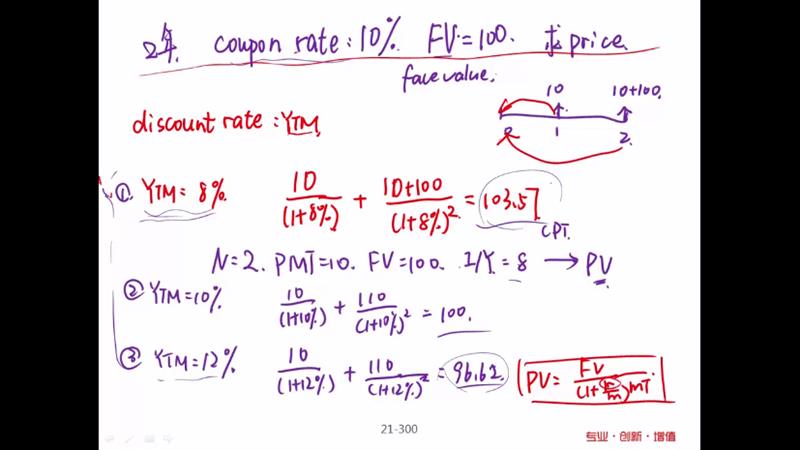 2年 coupon rate: 10% FV=100. 求price.
face value.
10 10+100
0 1 2
discount rate: YTM
① YTM= 8% 10/(1+8%) + 10+100/(1+8%)² = 103.57
CPT.
N=2. PMT=10. FV=100. I/Y=8 → PV
② YTM=10% 10/(1+10%) + 110/(1+10%)² = 100.
③ YTM=12% 10/(1+12%) + 110/(1+12%)² = 96.62.
PV= FV/(1+r/m)mT
21-300
专业·创新·增值